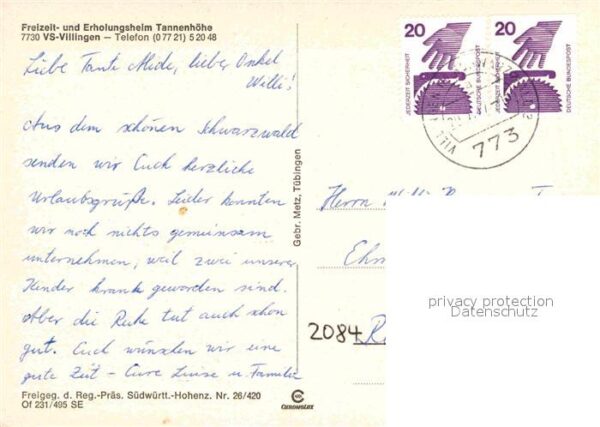 Freizeit- und Erholungsheim Tannenhöhe
7730 VS-Villingen – Telefon (0 77 21) 5 20 48
Liebe Tante Mide, lieber Onkel
Willi!
Aus dem schönen Schwarzwald
senden wir Euch herzliche
Urlaubsgrüße. Leider konnten
wir noch nichts gemeinsam
unternehmen, weil zwei unserer
Kinder krank geworden sind.
Aber die Ruhe tut auch schon
gut. Euch wünschen wir eine
gute Zeit – Eure Luise u. Familie
Freigeg. d. Reg.-Präs. Südwürtt.-Hohenz. Nr. 26/420
Of 231/495 SE
Gebr. Metz, Tübingen
CHROMOLUX
20
JEDERZEIT SICHERHEIT
DEUTSCHE BUNDESPOST
20
JEDERZEIT SICHERHEIT
DEUTSCHE BUNDESPOST
773
Herrn
2084
privacy protection
Datenschutz